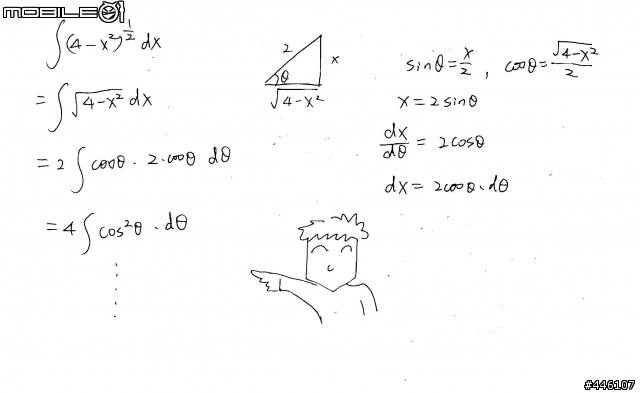 MOBILE01
∫(4-x²)^{1/2} dx
= ∫√(4-x²) dx
= 2∫cosθ · 2·cosθ dθ
= 4∫cos²θ · dθ
2
x
θ
√(4-x²)
sinθ = x/2 , cosθ = √(4-x²)/2
x = 2 sinθ
dx/dθ = 2cosθ
dx = 2cosθ · dθ
#446107